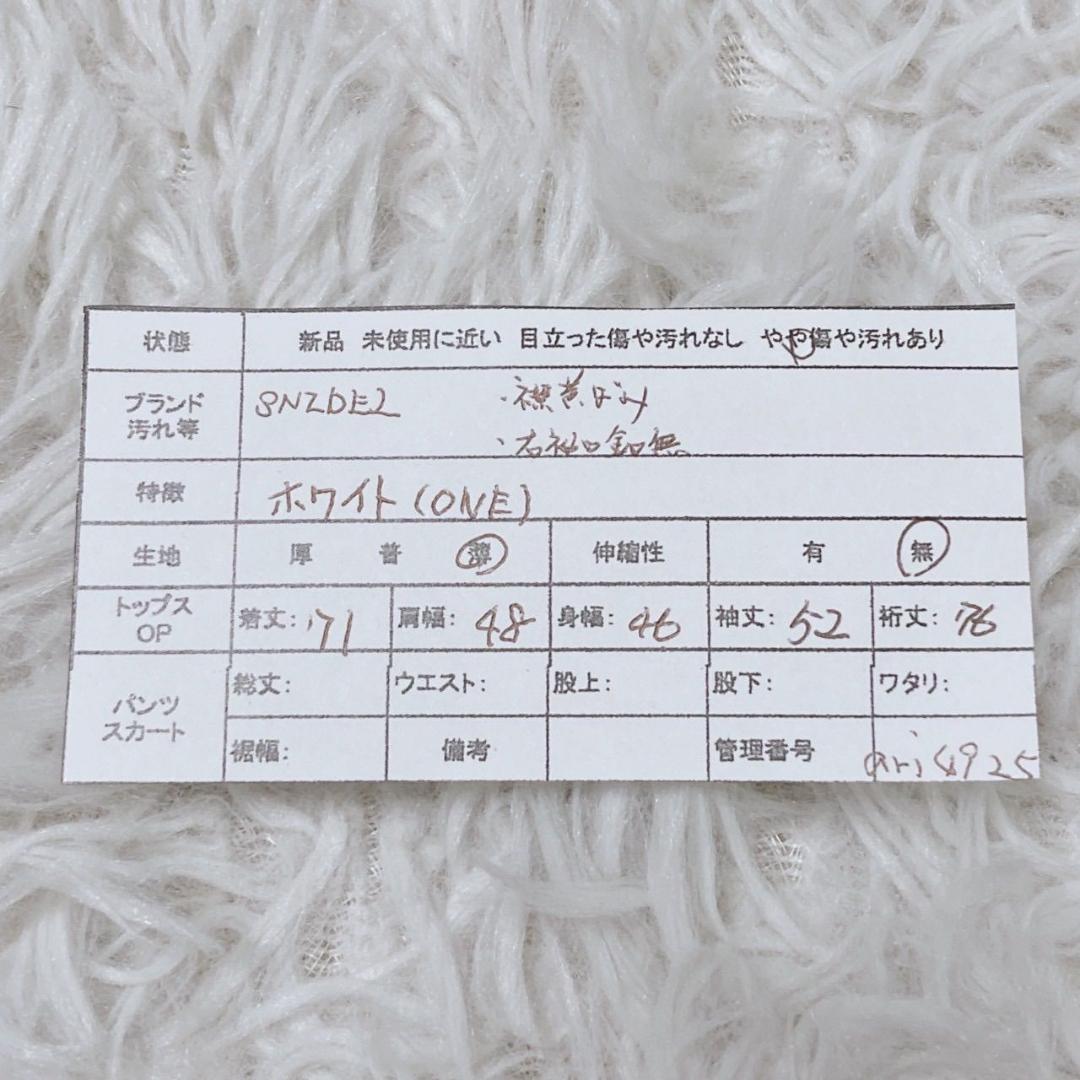 状態 新品 未使用に近い 目立った傷や汚れなし やや傷や汚れあり
ブランド SNIDEL ・襟黄ばみ
汚れ等 ・右袖口釦無
特徴 ホワイト(ONE)
生地 厚 普 薄 伸縮性 有 無
トップス OP 着丈: 71 肩幅: 48 身幅: 46 袖丈: 52 裄丈: 76
パンツ スカート 総丈: ウエスト: 股上: 股下: ワタリ:
裾幅: 備考 管理番号 ari4925